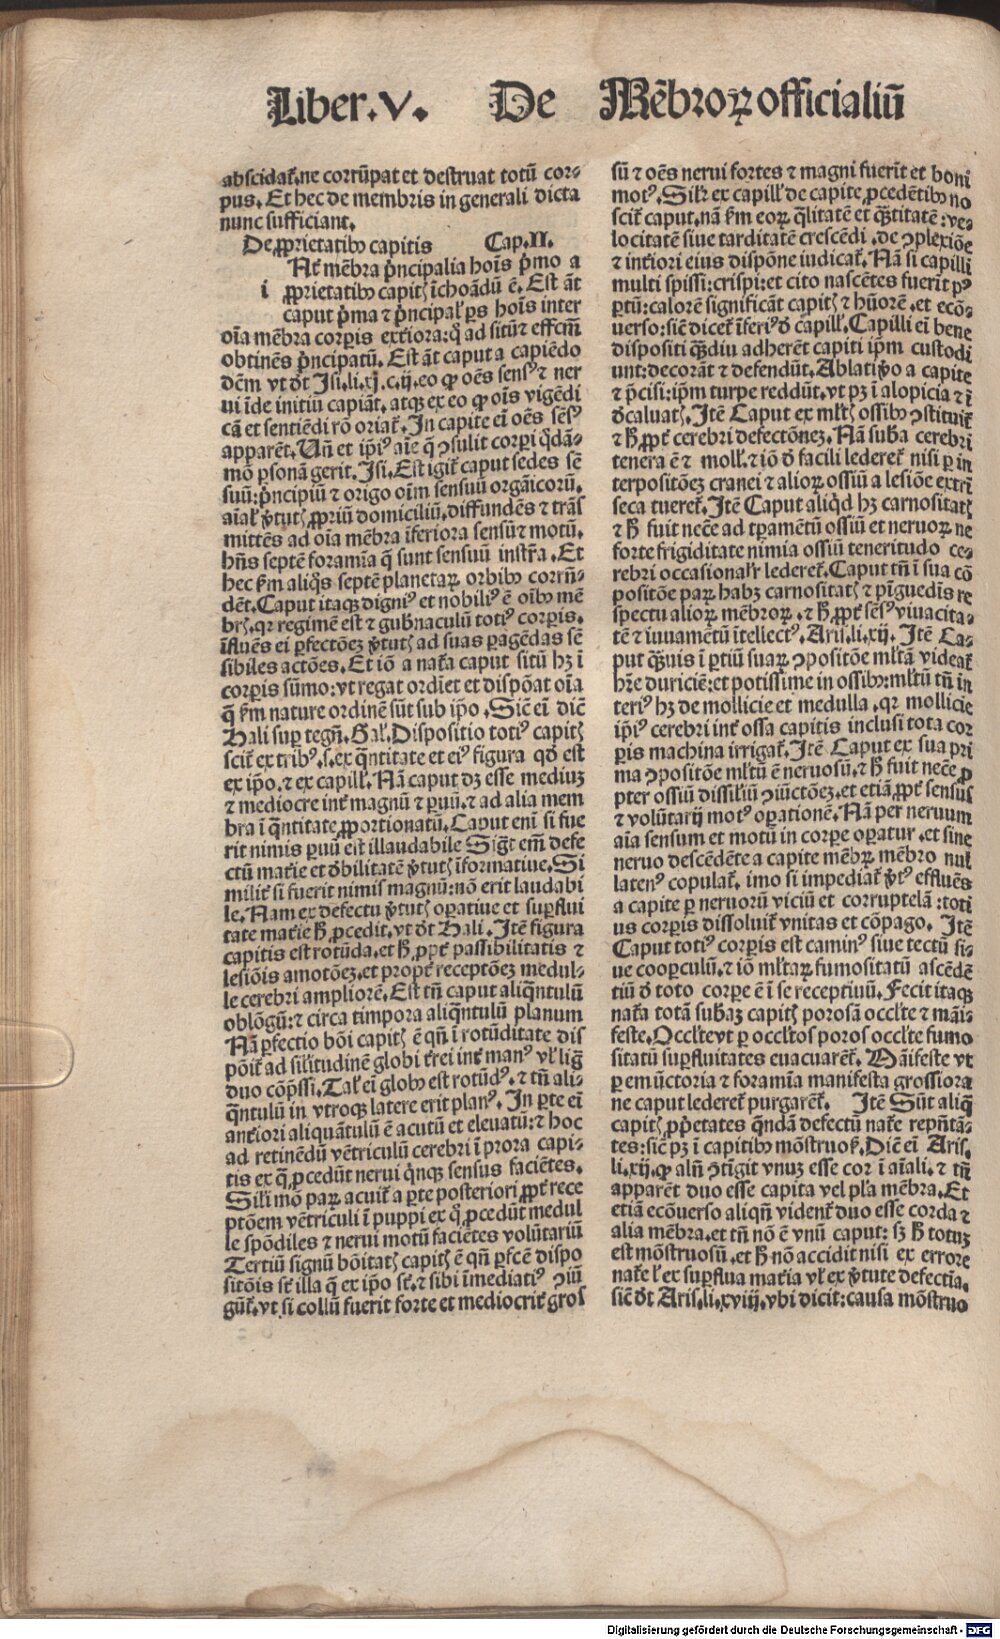 Liber.V. De Mēbroꝝ officialiū
abscidat᷑.ne corrūpat et destruat totū cor-
pus. Et hec de membris in generali dicta
nunc sufficiant.
De ꝓprietatibꝰ capitis Cap.II.
i Nt᷑ mēbra pͥncipalia hoīs pͥmo a
ꝓprietatibꝰ capitꝭ īchoādū ē. Est āt
caput pͥma ⁊ pͥncipal̓ ꝑs hoīs inter
oīa mēbra corꝑis extͥiora: qͥ ad sitū ⁊ effcm̄
obtinēs pͥncipatū. Est āt caput a capiēdo
dc̄m vt dt̄ Isi.li.xj.c.ij.eo ꝙ oēs sensꝰ ⁊ ner
ui īde initiū capiāt.atqꝫ ex eo ꝙ oīs vigēdi
cā et sentiēdi rō oriat᷑. In capite eī oēs sēsꝰ
apparēt. Un̄ et ip̄iꝰ aīe q̄ ꝯsulit corꝑi qͦdā-
mō ꝑsonā gerit. Isi. Est igit᷑ caput sedes sē
suū: pͥncipiū ⁊ origo oīm sensuū orgāicorū.
aīal̓ v̓tutꝭ ꝓpriū domiciliū. diffundēs ⁊ trās
mittēs ad oīa mēbra īferiora sensū ⁊ motū.
hn̄s septē foramīa q̄ sunt sensuū instr̄a. Et
hec ẜm aliqͦs septē planetaꝝ orbibꝰ corrn̄-
dēt. Caput itaqꝫ digniꝰ et nobiliꝰ ē oībꝰ mē
brꝭ.qꝛ regimē est ⁊ gub̓naculū totiꝰ corꝑis.
īfluēs ei ꝑfectōeꝫ v̓tutꝭ ad suas ꝑagēdas sē
sibiles actōes. Et iō a nat̓a caput sitū hꝫ ī
corꝑis sūmo: vt regat ordīet et dispōat oīa
q̄ ẜm nature ordinē sūt sub ip̄o. Sic̄ eī dic̄
Hali suꝑ tegn̄. Gal̓. Dispositio totiꝰ capitꝭ
scit᷑ ex tribꝰ.s.ex qͣntitate et eiꝰ figura qd̄ est
ex ip̄o.⁊ ex capill̓. Nā caput dꝫ esse mediuꝫ
⁊ mediocre int᷑ magnū ⁊ ꝑuū.⁊ ad alia mem
bra ī qͣntitate ꝓportionatū. Caput enī si fue
rit nimis ꝑuū est illaudabile Sigͭ em̄ defe
ctū mat̓ie et d̓bilitatē v̓tutꝭ īformatiue. Si
milit᷑ si fuerit nimis magnū: nō erit laudabi
le. Nam ex defectu v̓tutꝭ oꝑatiue et suꝑflui
tate mat̓ie h̄ ꝓcedit.vt dt̄ Hali. Itē figura
capitis est rotūda.et h̄ ꝓpt᷑ passibilitatis ⁊
lesiōis amotōeꝫ.et propt᷑ receptōeꝫ medul-
le cerebri ampliorē. Est tn̄ caput aliqͣntulū
oblōgū: ⁊ circa timpora aliqͣntulū planum
Nā ꝑfectio bōi capitꝭ ē qn̄ ī rotūditate dis
pōit᷑ ad sil̓itudinē globi t̓rei int᷑ manꝰ vl̓ ligͣ
duo cōp̄ssi. Tal̓ eī globꝰ est rotūdꝰ.⁊ tn̄ ali-
qͣntulū in vtroqꝫ latere erit planꝰ. In ꝑte eī
ant̓iori aliquātulū ē acutū et eleuatū: ⁊ hoc
ad retinēdū vētriculū cerebri ī prora capi-
tis ex q̄ ꝓcedūt nerui qͥnqꝫ sensus faciētes.
Sil̓i mō paꝝ acuit᷑ a ꝑte posteriori ꝓpt᷑ rece
ptōem vētriculi ī puppi ex qͦ ꝓcedūt medul
le spōdiles ⁊ nerui motū faciētes volūtariū
Tertiū signū bōitatꝭ capitꝭ ē qn̄ ꝑfc̄e dispo
sitōis st̄ illa q̄ ex ip̄o st̄.⁊ sibi īmediatiꝰ ꝯiū
gūt᷑.vt si collū fuerit forte et mediocrit᷑ gros
sū ⁊ oēs nerui fortes ⁊ magni fuerīt et boni
motꝰ. Silr̄ ex capill̓ de capite ꝓcedētibꝰ no
scit᷑ caput.nā ẜm eoꝝ qͣlitatē et qͣntitatē: ve-
locitatē siue tarditatē crescēdi.de ꝯplexiōe
⁊ int̓iori eius dispōne iudicat᷑. Nā si capilli
multi spissi: crispi: et cito nascētes fuerīt pꝰ
ꝑtū: calorē significāt capitꝭ ⁊ hūorē.et ecō-
uerso: sic̄ dicet᷑ īferiꝰ d̓ capill̓. Capilli eī bene
dispositi qͣdiu adherēt capiti ip̄m custodi
unt: decorāt ⁊ defendūt. Ablati v̓o a capite
⁊ p̄cisi: ip̄m turpe reddūt.vt pꝫ ī alopicia ⁊ ī
d̓caluatꝭ. Itē Caput ex ml̓tꝭ ossibꝰ ꝯstituit᷑
⁊ h̄ ꝓpt᷑ cerebri defectōneꝫ. Nā sub̄a cerebri
tenera ē ⁊ moll̓.⁊ iō d̓ facili lederet᷑ nisi ꝑ in
terpositōeꝫ cranei ⁊ alioꝝ ossiū a lesiōe extrī
seca tueret᷑. Itē Caput aliqͥd hꝫ carnositatꝭ
⁊ h̄ fuit nec̄e ad tꝑamētū ossiū et neruoꝝ ne
forte frigiditate nimia ossiū teneritudo ce-
rebri occasional̓r lederet᷑. Caput tn̄ ī sua cō
positōe paꝝ habꝫ carnositatꝭ ⁊ pīguedīs re
spectu alioꝝ mēbroꝝ.⁊ h̄ ꝓpt᷑ sēsꝰ viuacita-
tē ⁊ iuuamētū ītellectꝰ. Aris.li.xij. Itē Ca-
put qͣuis ī ꝑtiū suaꝝ ꝯpositōe ml̓tā videat᷑
hr̄e duriciē: et potissime in ossibꝰ: ml̓tū tn̄ in
teriꝰ hꝫ de mollicie et medulla.qꝛ mollicie
ip̄iꝰ cerebri int᷑ ossa capitis inclusi tota cor
ꝑis machina irrigat᷑. Itē Caput ex sua pri
ma ꝯpositōe ml̓tū ē neruosū.⁊ h̄ fuit nec̄e ꝓ
pter ossiū dissil̓iū ꝯiūctōeꝫ.et etiā ꝓpt᷑ sensus
⁊ volūtarij motꝰ oꝑationē. Nā per neruum
aīa sensum et motū in corpe oꝑatur.et sine
neruo descēdēte a capite mēbꝝ mēbro nul
latenꝰ copulat᷑. imo si impediat᷑ v̓tꝰ effluēs
a capite ꝑ neruorū viciū et corruptelā: toti
us corꝑis dissoluit᷑ vnitas et cōpago. Itē
Caput totiꝰ corꝑis est caminꝰ siue tectū si-
ue cooꝑculū.⁊ iō ml̓taꝝ fumositatū ascēdē
tiū d̓ toto corpe ē ī se receptiuū. Fecit itaqꝫ
nat̓a totā sub̄aꝫ capitꝭ porosā occl̓te ⁊ māi-
feste. Occl̓te vt ꝑ occl̓tos poros occl̓te fumo
sitatū suꝑfluitates euacuarēt᷑. Māifeste vt
ꝑ emūctoria ⁊ foramīa manifesta grossiora
ne caput lederet᷑ purgarēt᷑. Itē Sūt aliqͣ
capitꝭ ꝓp̓etates qͣndā defectū nat̓e rep̄ntā-
tes: sic̄ pꝫ ī capitibꝰ mōstruosꝭ. Dic̄ eī Aris.
li.xij.ꝙ aln̄ ꝯtīgit vnuꝫ esse cor ī aīali.⁊ tn̄
apparēt duo esse capita vel pl̓a mēbra. Et
etiā ecōuerso aliqn̄ vident᷑ duo esse corda ⁊
alia mēbra.et tn̄ nō ē vnū caput: sꝫ h̄ totuꝫ
est mōstruosū.et h̄ nō accidit nisi ex errore
nat̓e l̓ ex suꝑflua mat̓ia vl̓ ex v̓tute defectīa.
sic̄ dt̄ Aris.li.xviij.vbi dicit: causa mōstruo
Digitalisierung gefördert durch die Deutsche Forschungsgemeinschaft - DFG